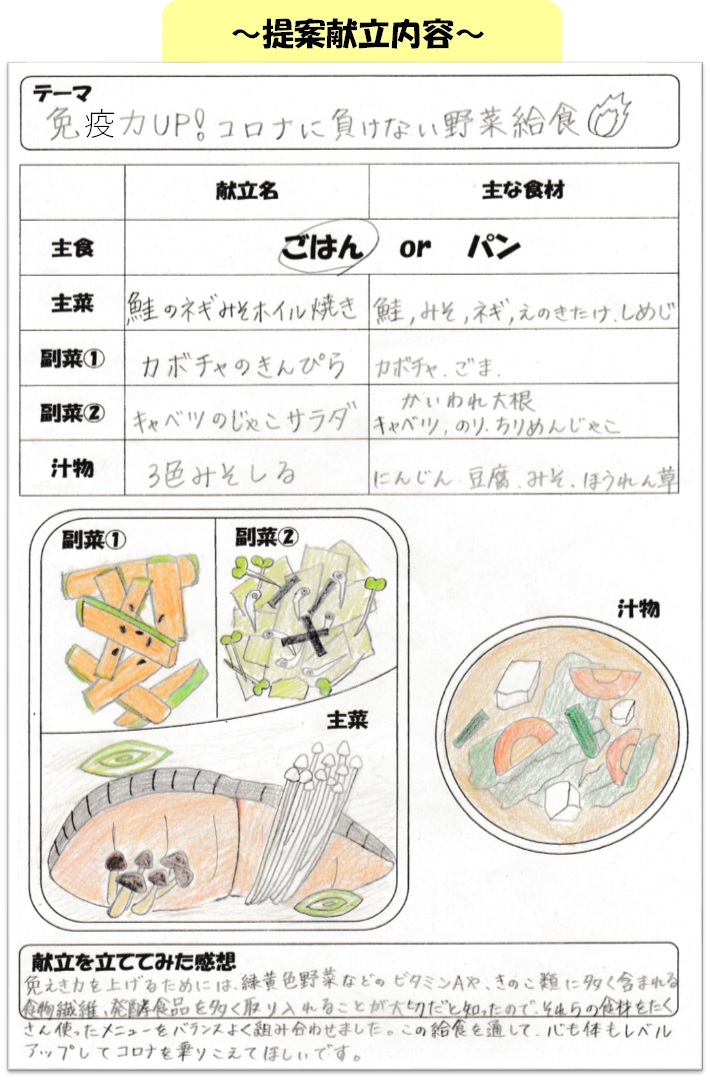 ～提案献立内容～
テーマ
免疫力UP!コロナに負けない野菜給食
献立名 主な食材
主食 ごはん or パン
主菜 鮭のネギみそホイル焼き 鮭,みそ,ネギ,えのきたけ.しめじ
副菜① カボチャのきんぴら カボチャ.ごま.
かいわれ大根
副菜② キャベツのじゃこサラダ キャベツ,のり.ちりめんじゃこ
汁物 3色みそしる にんじん.豆腐.みそ.ほうれん草
副菜① 副菜②
汁物
主菜
献立を立ててみた感想
免えき力を上げるためには、緑黄色野菜などのビタミンAや、きのこ類に多く含まれる
食物繊維、発酵食品を多く取り入れることが大切だと知ったので、それらの食材をたく
さん使ったメニューをバランスよく組み合わせました。この給食を通して、心も体もレベル
アップしてコロナを乗りこえてほしいです。